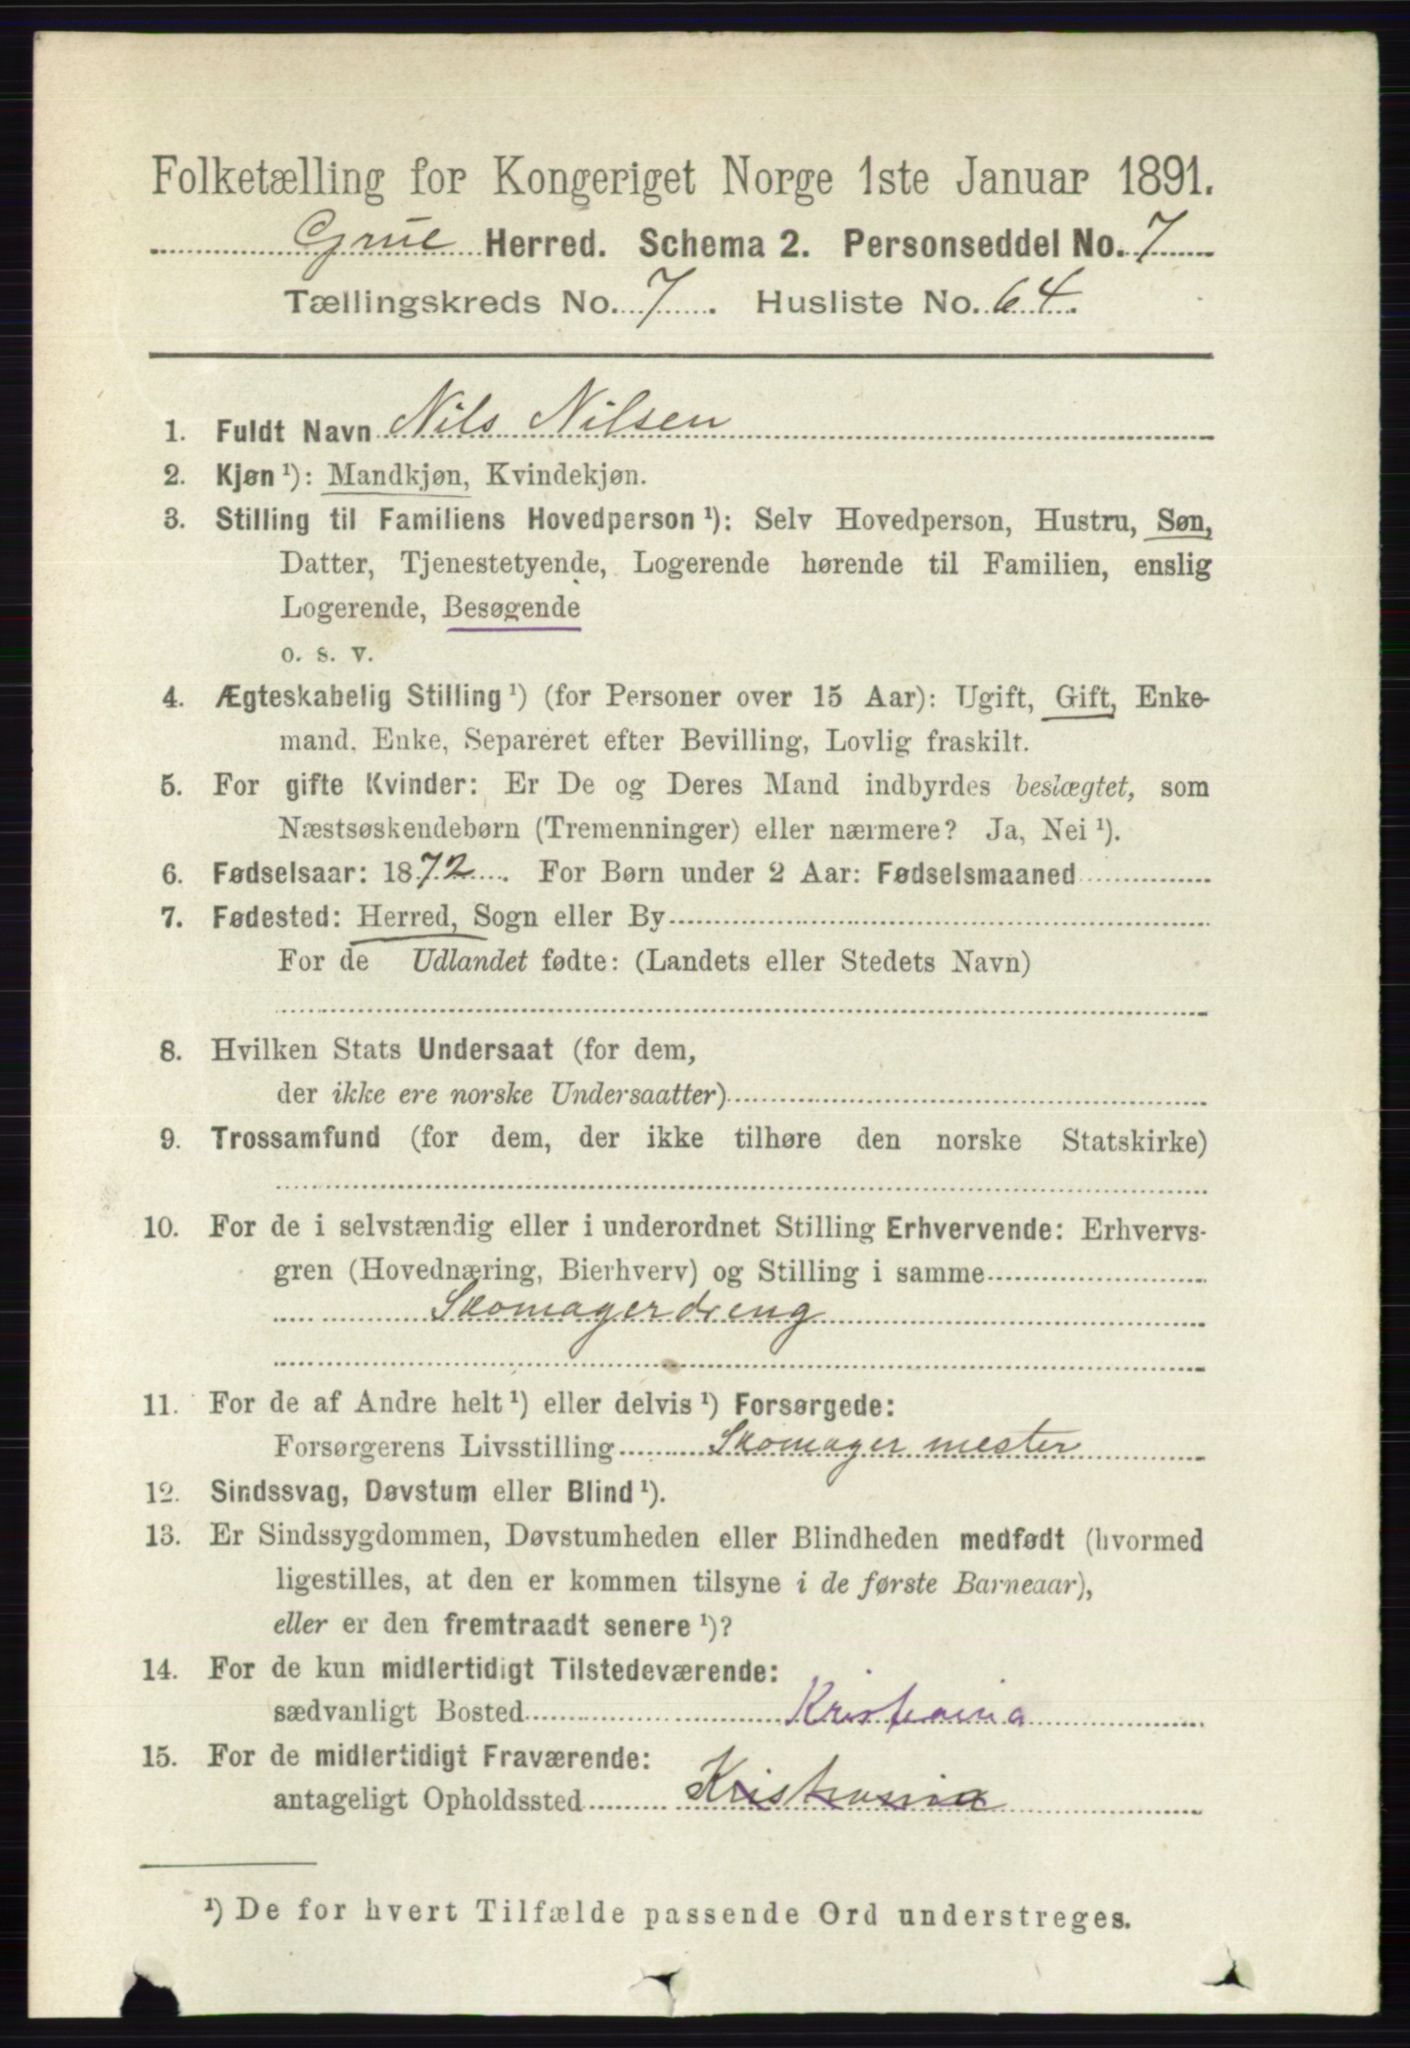 Folketælling for Kongeriget Norge 1ste Januar 1891.
Grue Herred. Schema 2. Personseddel No. 7
Tællingskreds No. 7. Husliste No. 64.
1. Fuldt Navn Nils Nilsen
2. Kjøn ¹): Mandkjøn, Kvindekjøn.
3. Stilling til Familiens Hovedperson ¹): Selv Hovedperson, Hustru, Søn,
Datter, Tjenestetyende, Logerende hørende til Familien, enslig
Logerende, Besøgende
o. s. v.
4. Ægteskabelig Stilling ¹) (for Personer over 15 Aar): Ugift, Gift, Enke-
mand, Enke, Separeret efter Bevilling, Lovlig fraskilt.
5. For gifte Kvinder: Er De og Deres Mand indbyrdes beslægtet, som
Næstsøskendebørn (Tremenninger) eller nærmere? Ja, Nei ¹).
6. Fødselsaar: 1872. For Børn under 2 Aar: Fødselsmaaned
7. Fødested: Herred, Sogn eller By
For de Udlandet fødte: (Landets eller Stedets Navn)
8. Hvilken Stats Undersaat (for dem,
der ikke ere norske Undersaatter)
9. Trossamfund (for dem, der ikke tilhøre den norske Statskirke)
10. For de i selvstændig eller i underordnet Stilling Erhvervende: Erhvervs-
gren (Hovednæring, Bierhverv) og Stilling i samme
Skomagerdreng
11. For de af Andre helt ¹) eller delvis ¹) Forsørgede:
Forsørgerens Livsstilling Skomager mester
12. Sindssvag, Døvstum eller Blind ¹).
13. Er Sindssygdommen, Døvstumheden eller Blindheden medfødt (hvormed
ligestilles, at den er kommen tilsyne i de første Barneaar),
eller er den fremtraadt senere ¹)?
14. For de kun midlertidigt Tilstedeværende:
sædvanligt Bosted Kristiania
15. For de midlertidigt Fraværende:
antageligt Opholdssted Kristiania
¹) De for hvert Tilfælde passende Ord understreges.